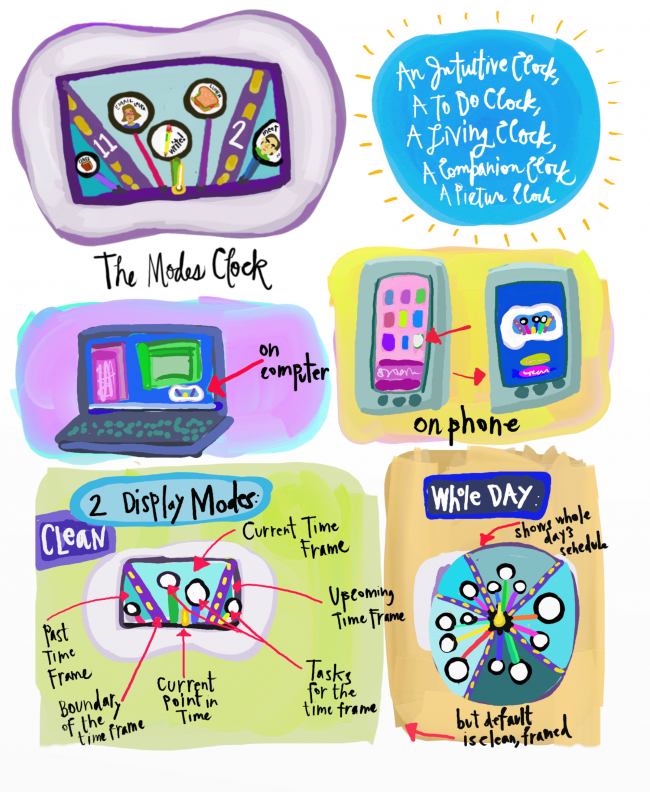 EMAIL MOM
LUNCH
11
write!
2
meet
An Intuitive Clock,
A To Do Clock,
A Living Clock,
A Companion Clock
A Picture Clock
The Modes Clock
on
computer
on phone
2 Display Modes:
CLEAN
Current Time
Frame
Past
Time
Frame
Boundary
of the
time frame
Current
Point in
Time
Upcoming
Time Frame
Tasks
for the
time frame
WHOLE DAY
shows whole
day's
schedule
but default
is clean, framed